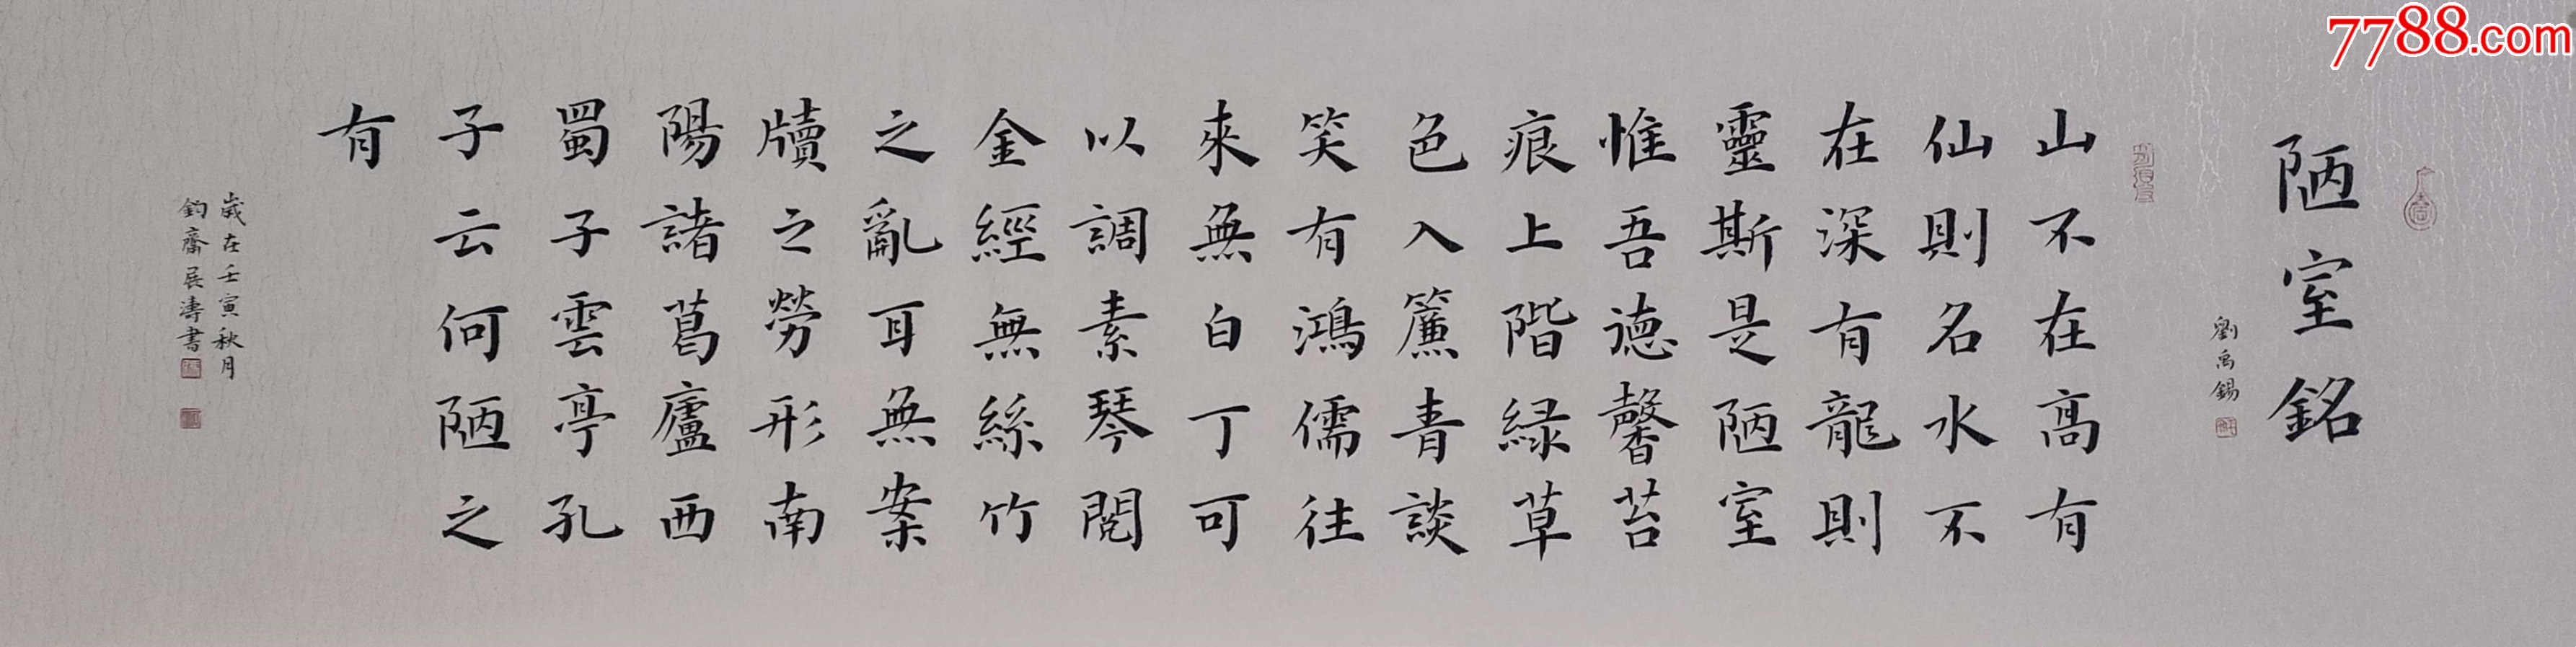 7788.com
陋室銘
劉禹錫
山不在高有
仙則名水不
在深有龍則
靈斯是陋室
惟吾德馨苔
痕上階緑草
色入簾青談
笑有鴻儒往
來無白丁可
以調素琴閱
金經無絲竹
之亂耳無案
牘之勞形南
陽諸葛廬西
蜀子雲亭孔
子云何陋之
有
歲在壬寅秋月
鈞齋展濤書